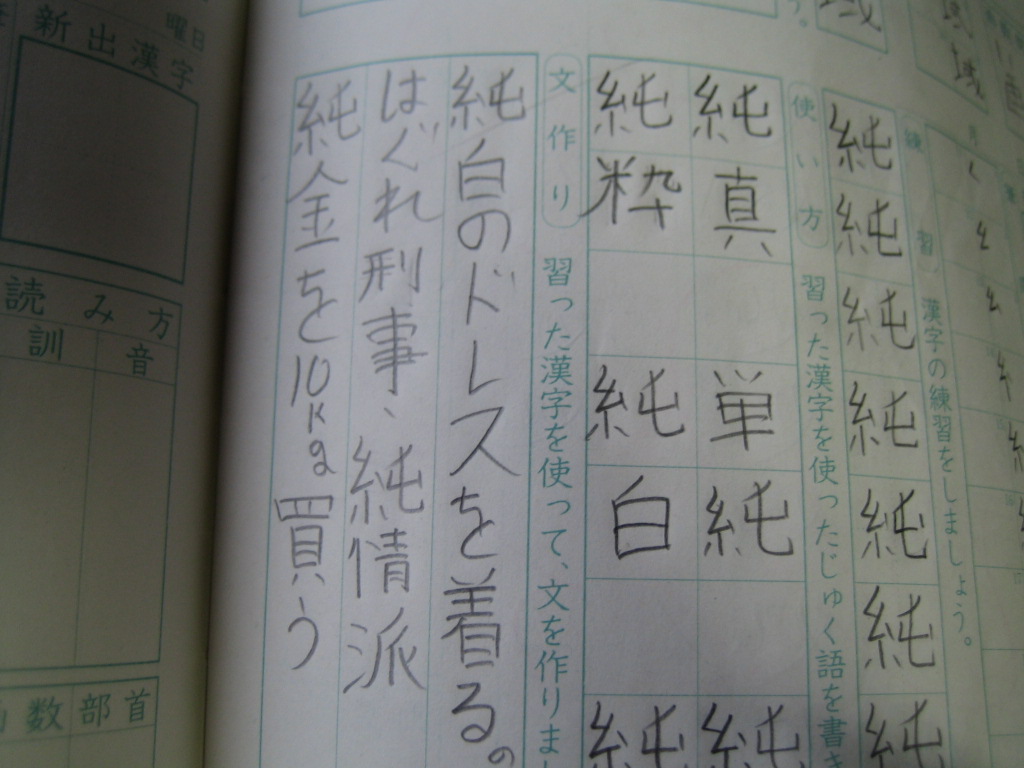 練習 漢字の練習をしましょう。
純
純
純
純
純
純
純
使い方 習った漢字を使ったじゅく語を書き
純真
単純
純
純粋
純白
純
文作り 習った漢字を使って、文を作りま
純白のドレスを着る。
はぐれ刑事、純情派
純金を10Kg買う
曜日
新出漢字
読み方
音
訓
部首
数